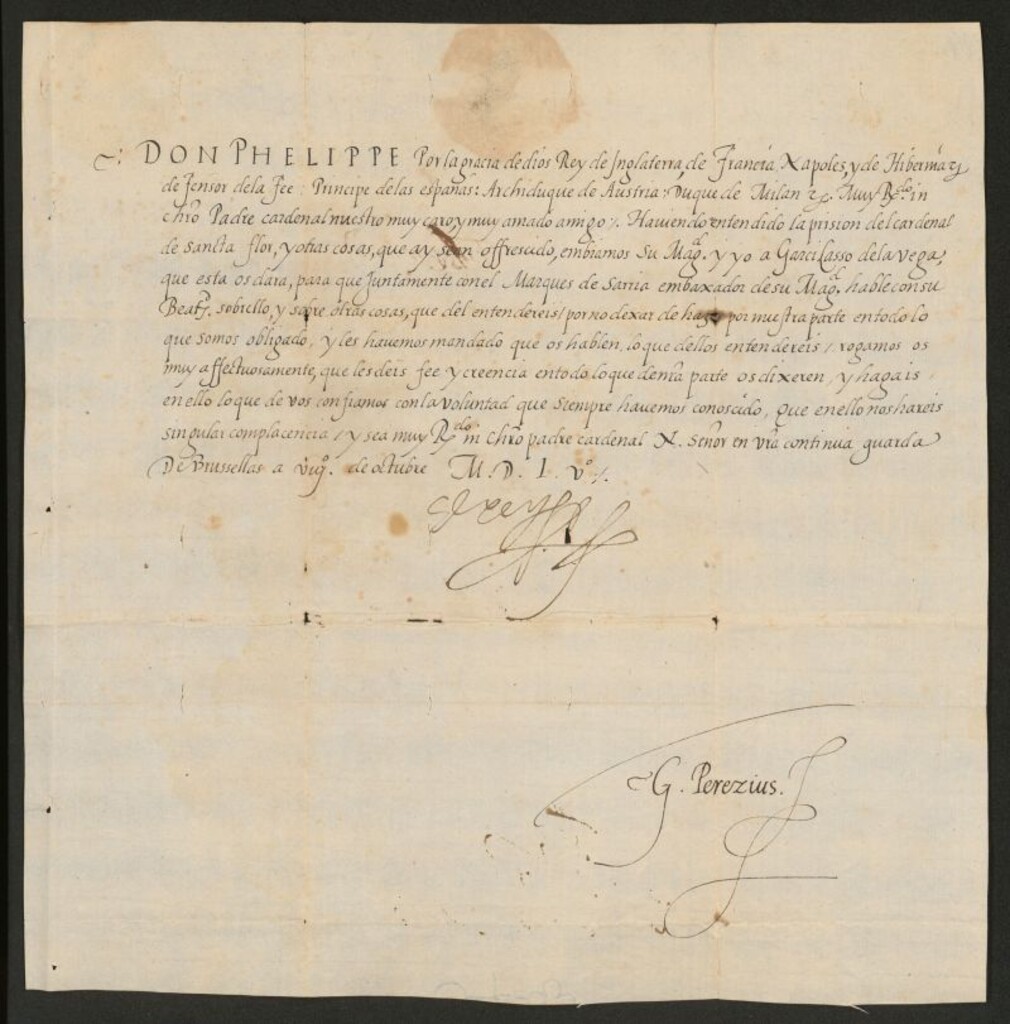 DON PHELIPPE Por la gracia de dios Rey de Inglaterra, de Francia, Napoles, y de Hibernia &
defensor de la Fee: Principe de las españas: Archiduque de Austria: Duque de Milan &. Muy R.do in
chr̃o Padre cardenal nuestro muy caro, y muy amado amigo ⁒. Haviendo entendido la prision del cardenal
de sancta flor, y otras cosas, que ay se an offrescido, embiamos su Mag.d y yo a GarciLasso dela vega,
que esta os dara, para que Juntamente con el Marques de Sarria embaxador de su Mag.d hable con su
Beat.d sobrello, y sobre otras cosas, que del entendereis / por no dexar de hazer por nuestra parte en todo lo
que somos obligado, y les havemos mandado que os hablen, lo que dellos entendereis / rogamos os
muy affectuosamente, que les deis fee y creencia en todo lo que de nr̃a parte os dixeren, y hagais
en ello lo que de vos confiamos con la voluntad que siempre havemos conoscido, que en ello nos hareis
singular complacencia / y sea muy R.do in chr̃o padre cardenal N. Señor en vr̃a continua guarda
De Brussellas a viij. de octubre M. D. L. V.º ⁒.
G. Perezius.